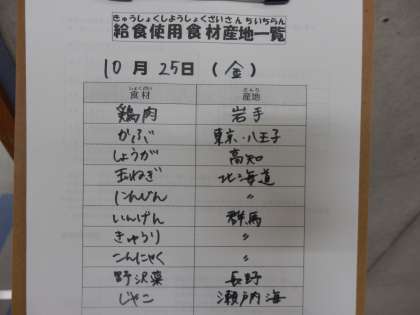 きゅうしょくしようしょくざいさんちいちらん
給食使用食材産地一覧
10月25日(金)
しょくざい さんち
食材 産地
鶏肉 岩手
かぶ 東京・八王子
しょうが 高知
玉ねぎ 北海道
にんじん 〃
いんげん 群馬
きゅうり 〃
こんにゃく 〃
野沢菜 長野
じゃこ 瀬戸内海